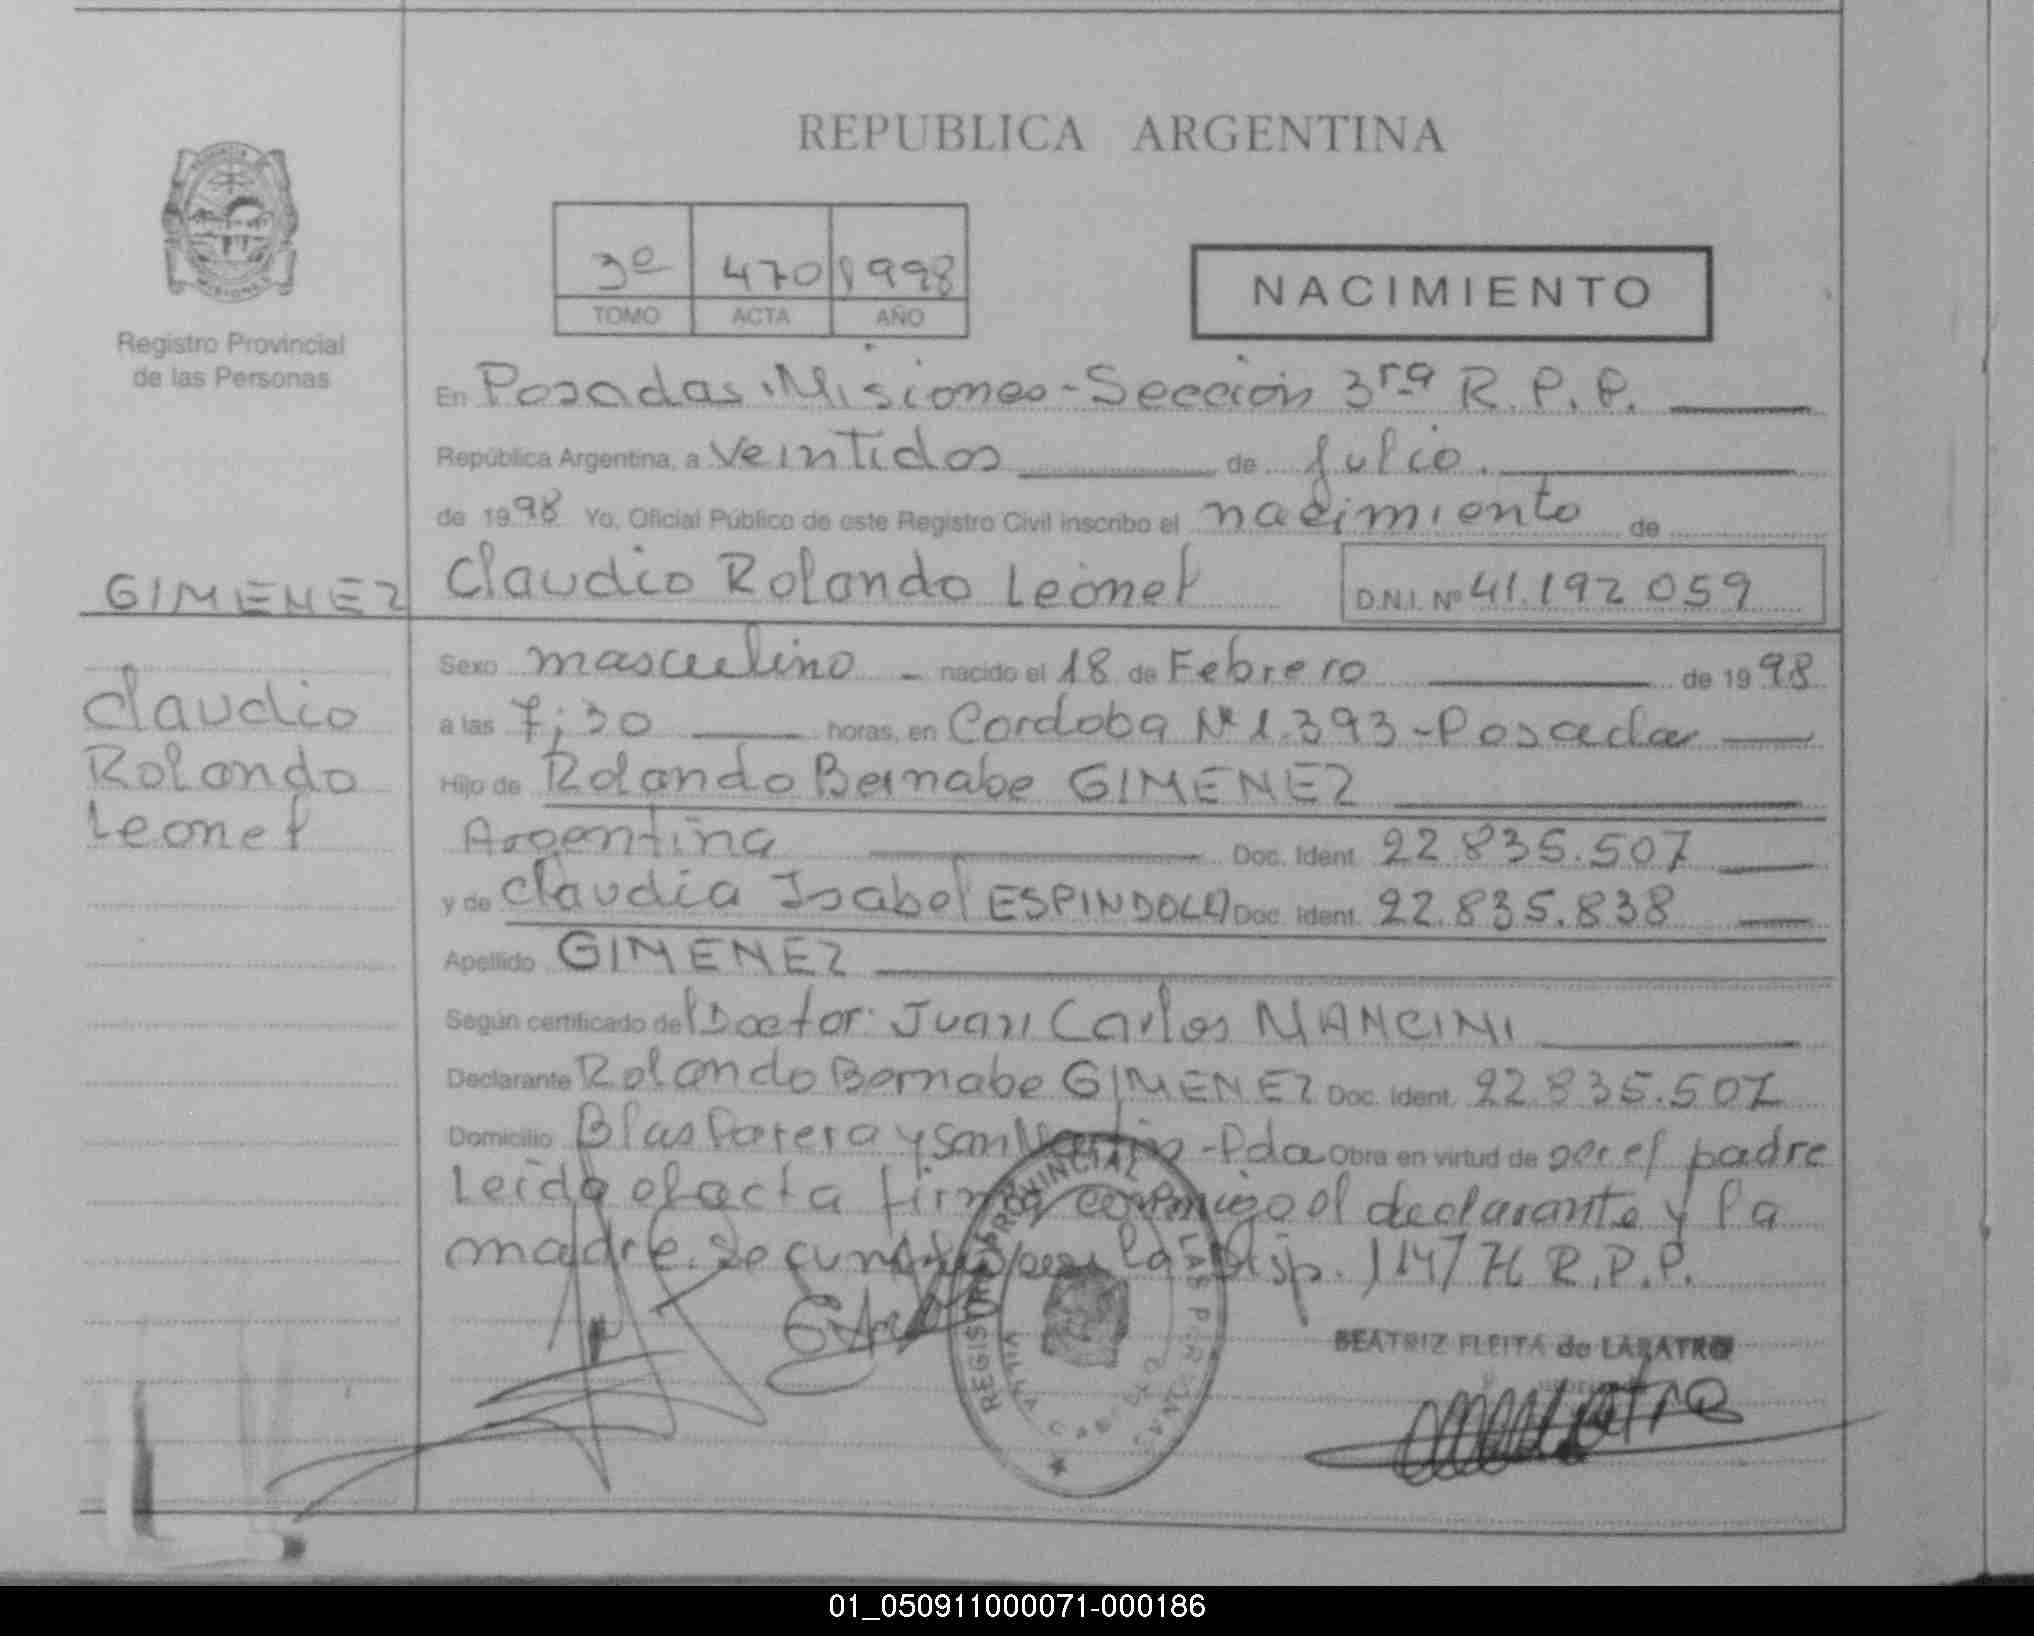 REPUBLICA ARGENTINA
3º 470 1998
TOMO ACTA AÑO
NACIMIENTO
PROVINCIA
MISIONES
Registro Provincial
de las Personas
En Posadas Misiones - Sección 3ra R.P.P.
República Argentina, a veintidos de Julio.
de 1998 Yo, Oficial Público de este Registro Civil inscribo el nacimiento de
GIMENEZ
Claudio Rolando Leonel D.N.I. Nº 41.192.059
Claudio
Rolando
Leonel
Sexo masculino - nacido el 18 de Febrero de 1998
a las 7;30 horas, en Cordoba Nº 1.393 - Posadas
Hijo de Rolando Bernabe GIMENEZ
Argentina Doc. Ident. 22.835.507
y de Claudia Isabel ESPINDOLA Doc. Ident. 22.835.838
Apellido GIMENEZ
Según certificado del Doctor: Juan Carlos MANCINI
Declarante Rolando Bernabe GIMENEZ Doc. Ident. 22.835.507
Domicilio Blas Parera y San Martin - Pdas Obra en virtud de ser el padre
Leida el acta firma conmigo el declarante y la
madre. Se cumple la Disp. R.P.P.
REGISTRO PROVINCIAL DE LAS PERSONAS
VILLA CABELLO
BEATRIZ FLEITA de LABATRO
01_050911000071-000186